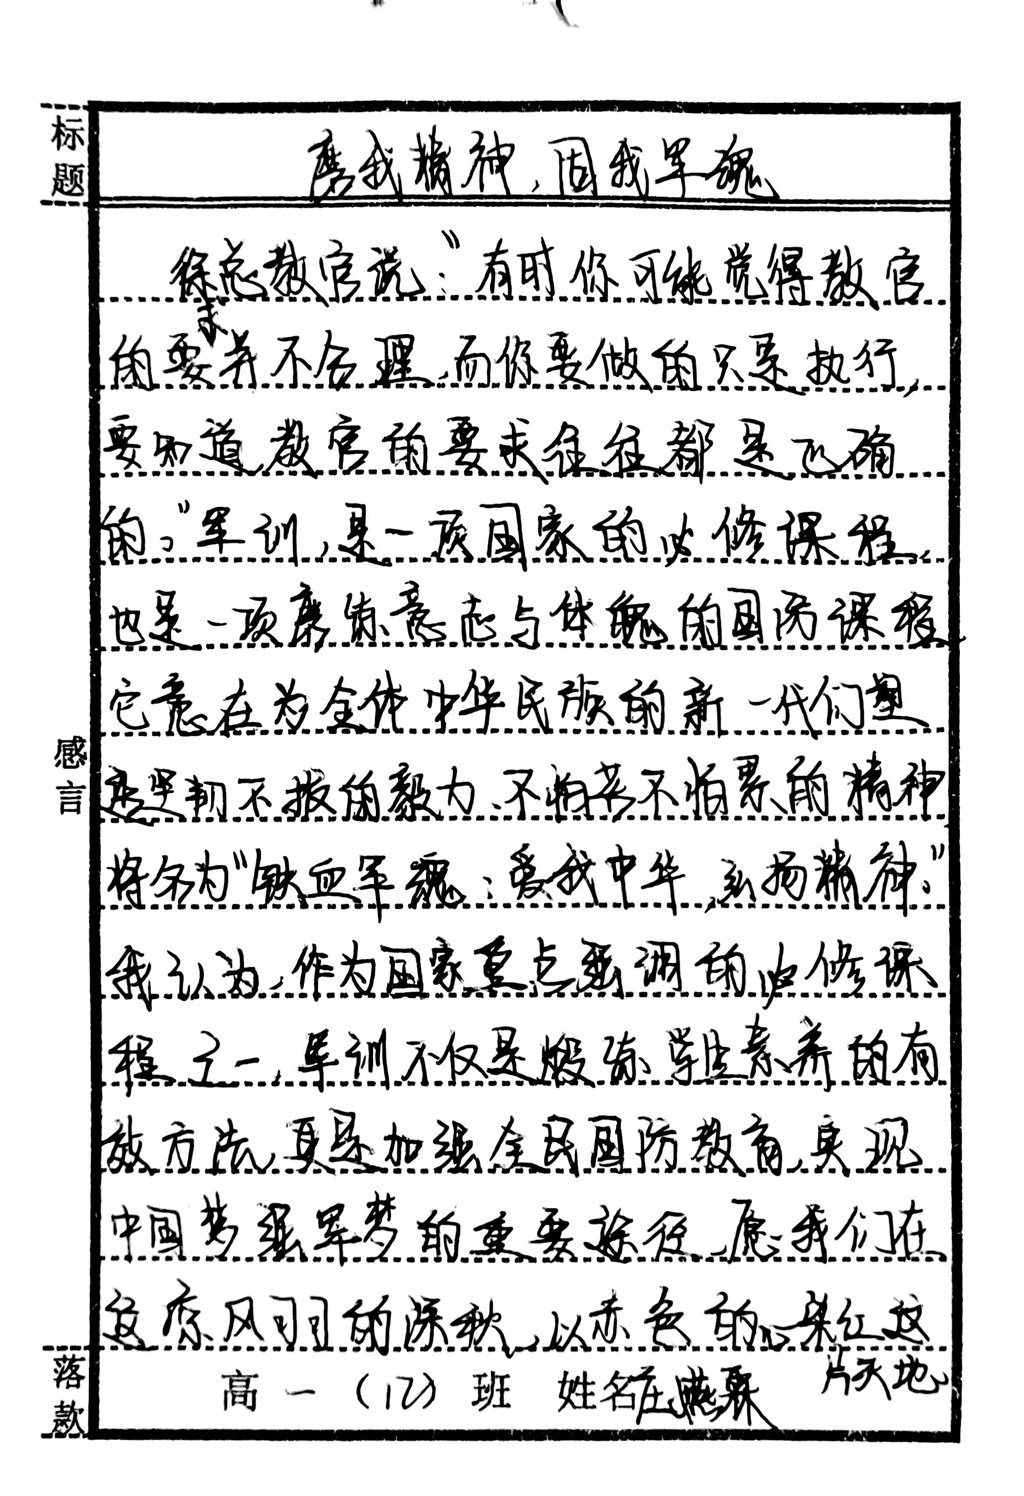 标题
磨我精神，固我军魂
徐总教官说：“有时你可能觉得教官
的要求并不合理，而你要做的只是执行，
要知道，教官的要求往往都是正确
的。”军训，是一项国家的必修课程，
也是一项磨练意志与体魄的国防课程
它意在为全体中华民族的新一代们塑
造坚韧不拔的毅力、不怕苦不怕累的精神
将名为“铁血军魂：爱我中华，弘扬精神。”
感言
我认为，作为国家重点强调的必修课
程之一，军训不仅是煅练学生素养的有
效方法，更是加强全民国防教育，实现
中国梦强军梦的重要途径，愿我们在
这凉风习习的深秋，以赤色的心染红这
片天地
落款
高一（12）班 姓名庄燕